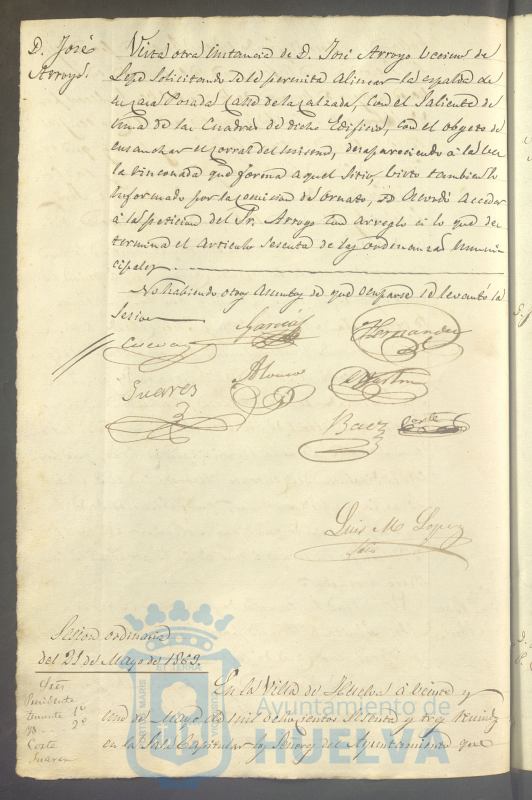 D. José
Arroyo.
Vista otra instancia de D. José Arroyo vecino de
Lepe solicitando se le permita alinear la espalda de
su casa Posada calle de la calzada, con el saliente de
una de las Cuadras de dicho Edificio, con el objeto de
ensanchar el corral del mismo, desapareciendo á la vez
la rinconada que forma aquel sitio, visto tambien lo
informado por la comision de ornato, se acordó acceder
á la peticion del Sr. Arroyo con arreglo á lo que de-
termina el articulo sesenta de las ordenanzas muni-
cipales.
No habiendo otros asuntos de que ocuparse se levantó la
Sesion
Cuevas García Hernandez
Suares Alonso Martin
Baez Corte
Luis M. Lopez
Srio
Sesion ordinaria
del 21 de Mayo de 1863.
Sres
Presidente
teniente 1º
Yd. 2º
Corte
Suares
En la Villa de Huelva á veinte y
uno de Mayo de mil ochocientos sesenta y tres reunidos
en la Sala Capitular los Señores del Ayuntamiento que
Ayuntamiento de
HUELVA